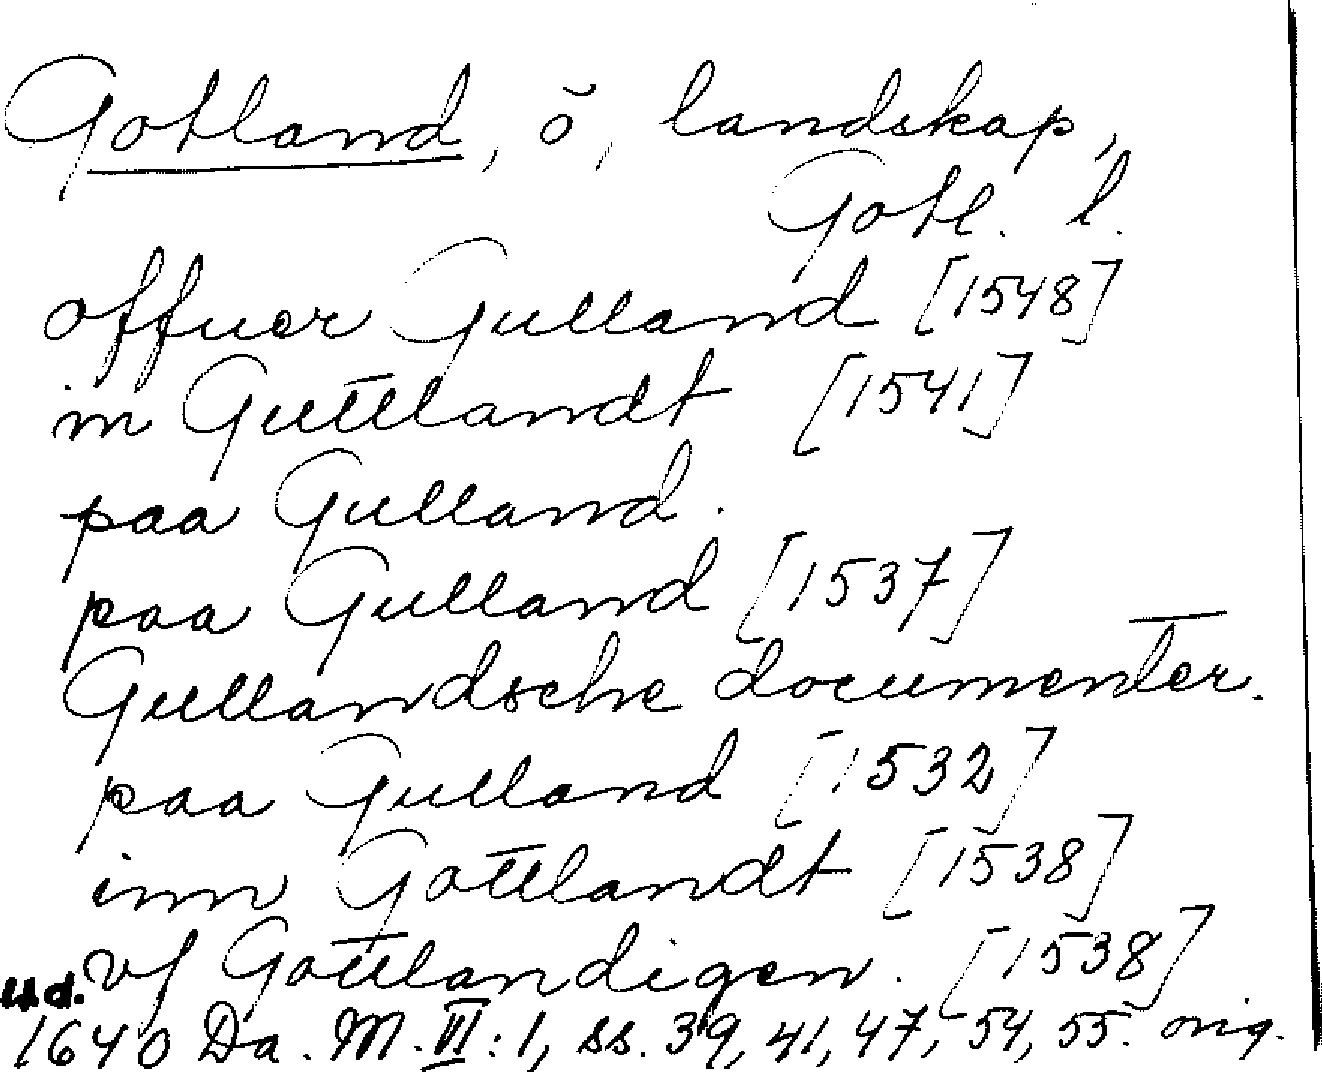 Gotland, ö, landskap,
Gotl. l.
offuer Gulland [1548]
in Guttlandt [1541]
paa Gulland.
paa Gulland [1537]
Gullandsche documenter.
paa Gulland [1532]
inn Gottlandt [1538]
vf Gottlandigen. [1538]
1640 Da. M. III: 1, ss. 39, 41, 47, 54, 55. orig.